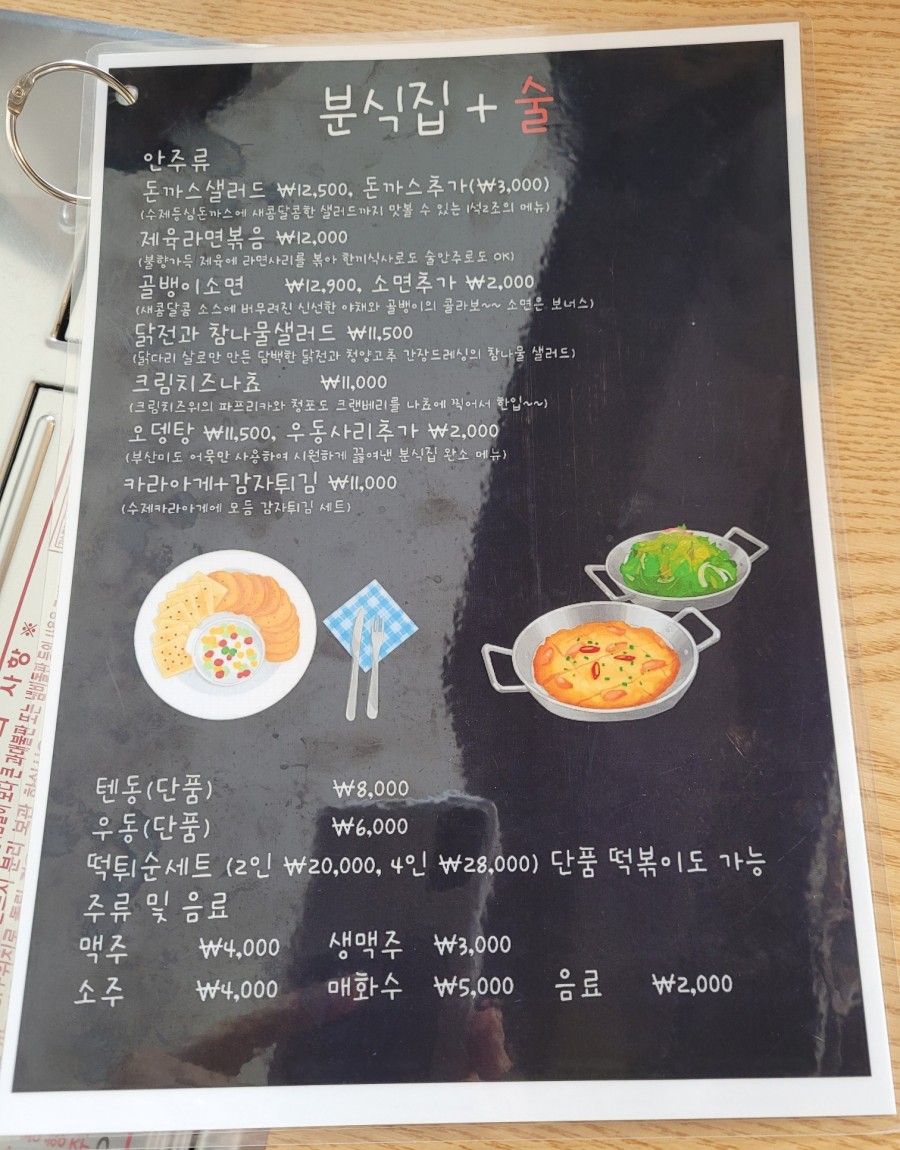 분식집 + 술
안주류
돈까스샐러드 ₩12,500, 돈까스추가(₩3,000)
(수제등심돈까스에 새콤달콤한 샐러드까지 맛볼 수 있는 1석2조의 메뉴)
제육라면볶음 ₩12,000
(불향가득 제육에 라면사리를 볶아 한끼식사로도 술안주로도 OK)
골뱅이소면 ₩12,900, 소면추가 ₩2,000
(새콤달콤 소스에 버무려진 신선한 야채와 골뱅이의 콜라보~~ 소면은 보너스)
닭전과 참나물샐러드 ₩11,500
(닭다리 살로만 만든 담백한 닭전과 청양고추 간장드레싱의 참나물 샐러드)
크림치즈나쵸 ₩11,000
(크림치즈위의 파프리카와 청포도 크랜베리를 나쵸에 찍어서 한입~~)
오뎅탕 ₩11,500, 우동사리추가 ₩2,000
(부산미도 어묵만 사용하여 시원하게 끓여낸 분식집 완소 메뉴)
카라아게+감자튀김 ₩11,000
(수제카라아게에 모듬 감자튀김 세트)
텐동(단품) ₩8,000
우동(단품) ₩6,000
떡튀순세트 (2인 ₩20,000, 4인 ₩28,000) 단품 떡볶이도 가능
주류 및 음료
맥주 ₩4,000 생맥주 ₩3,000
소주 ₩4,000 매화수 ₩5,000 음료 ₩2,000
사항 ※